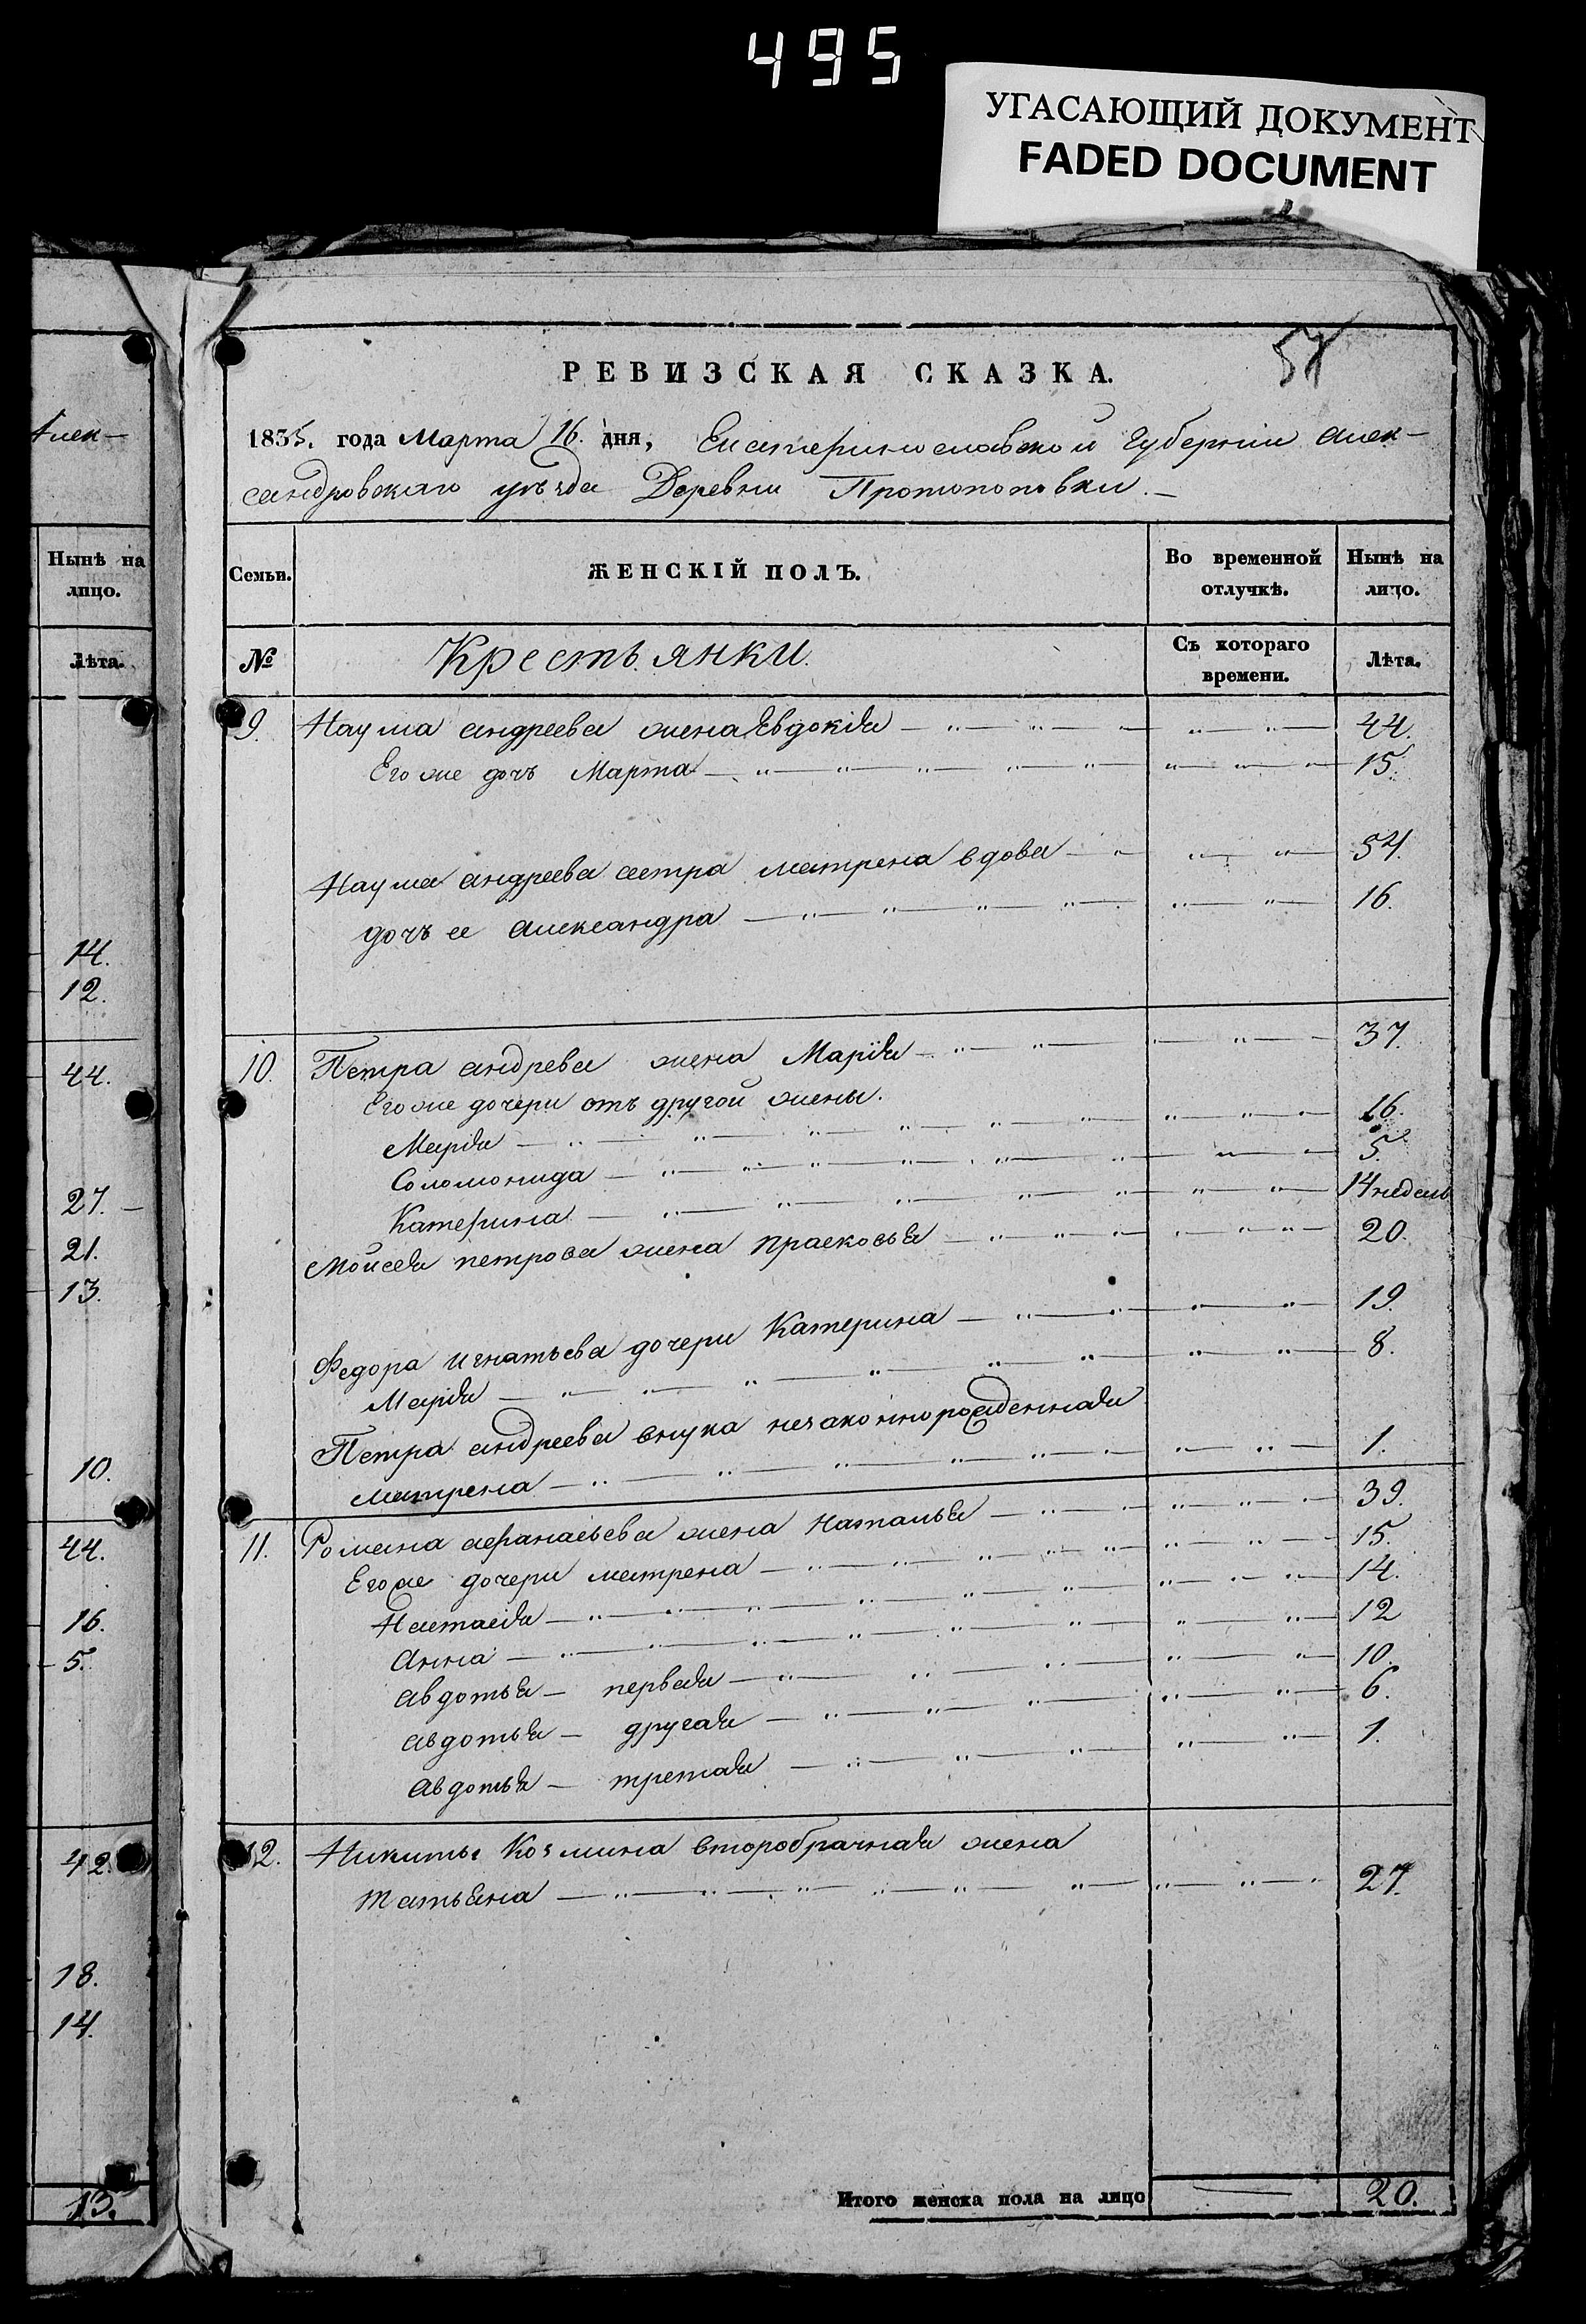 495
УГАСАЮЩИЙ ДОКУМЕНТ
FADED DOCUMENT
РЕВИЗСКАЯ СКАЗКА.
1835. года Марта 16. дня, Екатеринославской Губерніи Алек-
сандровскаго уѣзда Деревни Протопоповки.
Семьи.
ЖЕНСКІЙ ПОЛЪ.
Во временной отлучкѣ.
Нынѣ на лицо.
№
Крестьянки.
Съ котораго времени.
Лѣта.
9. Наума андреева жена Евдокія 44.
Его же дочь Марта 15.
Наума андреева сестра матрена вдова 54.
дочь ее александра 16.
10. Петра андрева жена Марія 37.
Его же дочери отъ другой жены.
Марія 16.
Соломонида 5.
Катерина 14 недель
Мойсея петрова жена прасковья 20.
Федора игнатьева дочери Катерина 19.
Марія 8.
Петра андреева внука незаконнорожденная
матрена 1.
11. Романа афанасьева жена наталья 39.
Его же дочери матрена 15.
Настасія 14.
Анна 12
авдотья – первая 10.
авдотья – другая 6.
авдотья – третая 1.
12. Никиты Козмина второбрачная жена
татьяна 27.
Итого женска пола на лицо 20.
Алек-
Нынѣ на
лицо.
Лѣта.
14.
12.
44.
27.
21.
13.
10.
44.
16.
5.
42.
18.
14.
13.